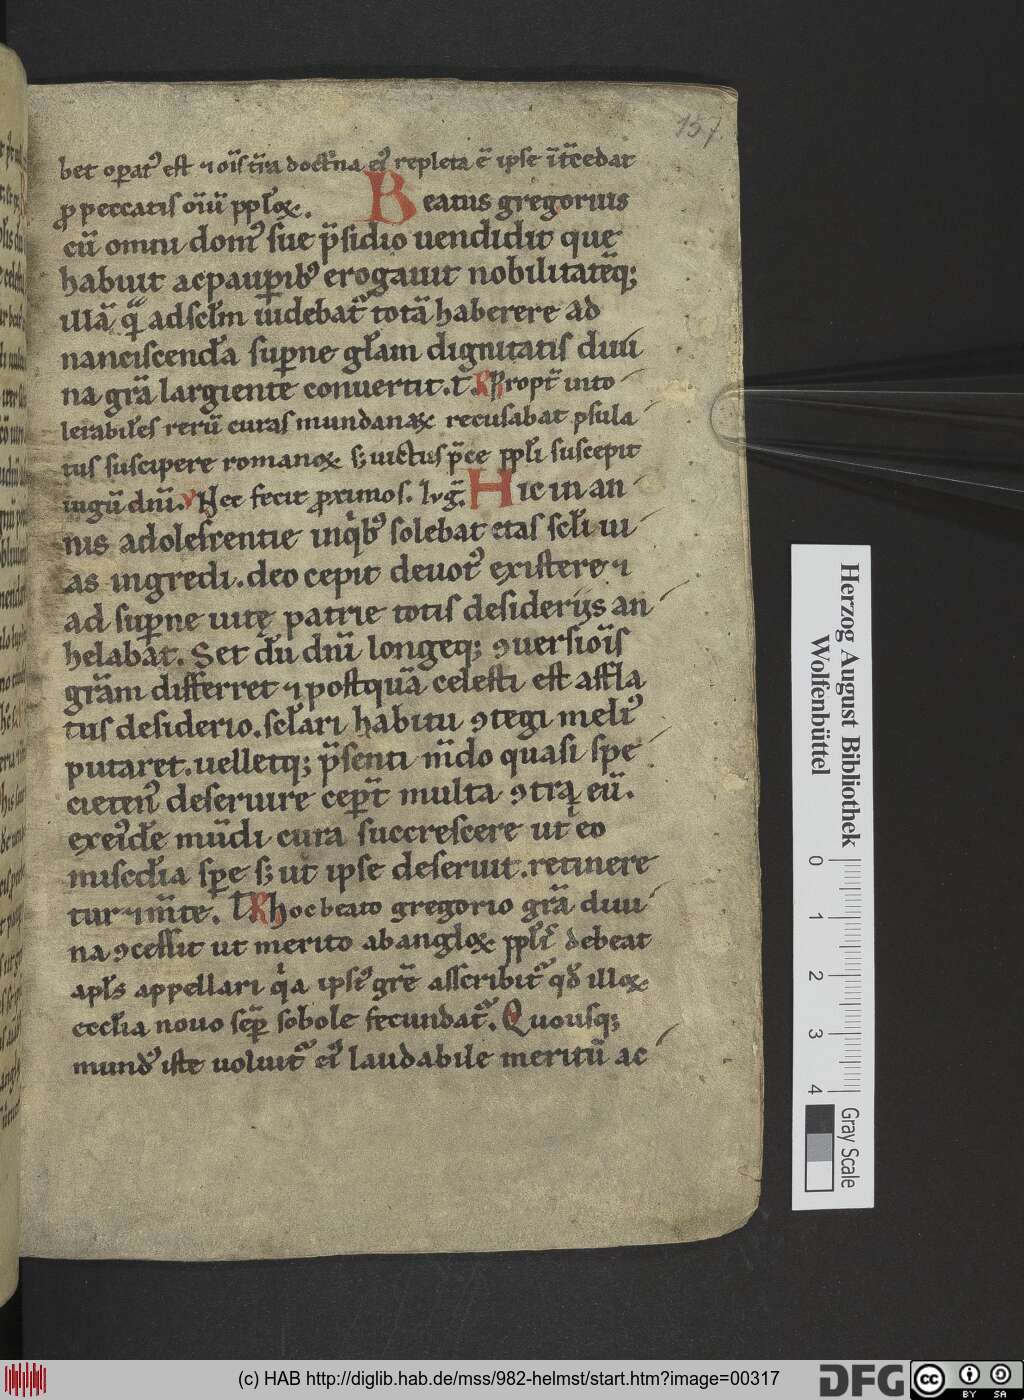 157
bet oꝑatꝰ est ⁊ oi̅s t̅ra doct̓na eiꝰ repleta e̅ ipse i̅t̅cedat
ꝓ peccatis oi̅u̅ ppl̅oꝝ. Beatus gregorius
cu̅ omni domꝰ sue p̅sidio uendidit quę
habuit ac pauꝑibꝰ erogauit nobilitate̅q;
illa̅ qͣ̅ ad scl̅m uidebat᷑ tota̅ haberere ad
nanciscenda̅ suꝑne gl̅am dignitatis diui
na gr̅a largiente conuertit. t̅. R Propt̅ into
lerabil̅es reru̅ curas mundanaꝝ recusabat p̅sula
tus suscipere romanoꝝ s; uictus p̅ce ppl̅i suscepit
iugu̅ dni̅. v Nec fecit ꝓximo s. lvg̅. Hic in an
nis adolescentie inqͥbꝰ solebat etas scl̅i ui
as ingredi. deo cepit deuotꝰ existere ⁊
ad suꝑne uitę patrie totis desiderijs an
helabat. Set du̅ diu̅ longeq; ꝯuersiois̅
gr̅am differret ⁊ postqua̅ celesti est affla
tus desiderio. scl̅ari habitu ꝯtegi meliꝰ
putaret. uelletq; p̅senti mu̅do quasi spe
cietenꝰ deseruire ceper̅t multa ꝯtra eu̅.
ex eiꝰde̅ mu̅di cura succrescere ut eo
nusec̅lia spe̅ s; ut ipse deseruit. retinere
tur ⁊ m̅te. t̅ R hoc beato gregorio gr̅a diui
na ꝯcessit ut merito ab angloꝝ ppl̅is debeat
apl̅s appellari qͥa ipsiꝰ gr̅e asscribit᷑ qd̅ illoꝝ
eccl̅ia nouo semꝑ sobole fecundat᷑. Quousq;
mundꝰ iste uoluit᷑ eiꝰ laudabile meritu̅ ac
Herzog August Bibliothek
Wolfenbüttel
0 1 2 3 4
Gray Scale
(c) HAB http://diglib.hab.de/mss/982-helmst/start.htm?image=00317
DFG
cc BY SA